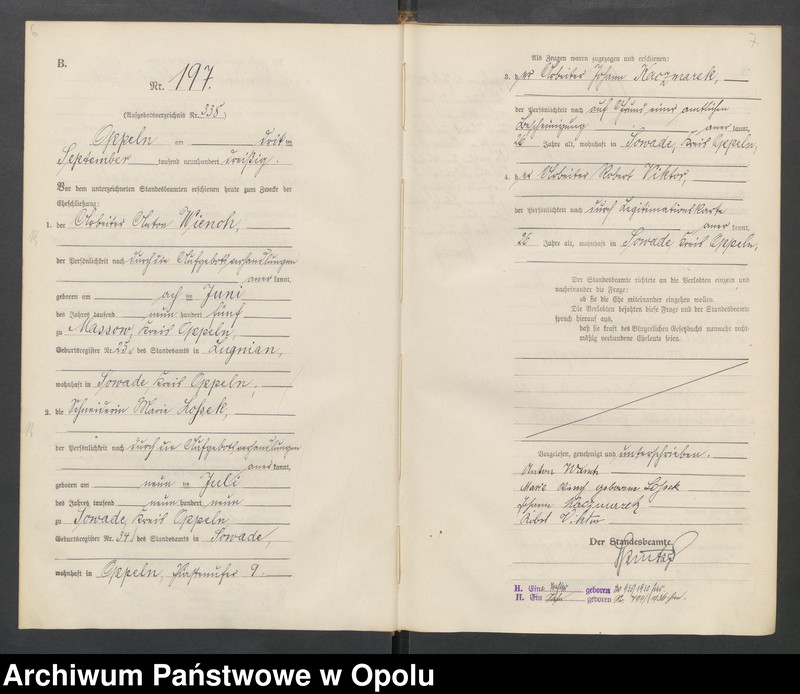 B.
Nr. 197.
(Aufgebotsverzeichnis Nr. 335)
Oppeln am
September tausend neunhundert dreißig.
Vor dem unterzeichneten Standesbeamten erschienen heute zum Zwecke der
Eheschließung:
1. der Arbeiter Anton Wiench,
der Persönlichkeit nach durch die Aufgebotsverhandlungen
anerkannt,
geboren am acht ten Juni
des Jahres tausend neun hundert fünf
zu Massow, Kreis Oppeln,
Geburtsregister Nr. 25 des Standesamts in Lugnian,
wohnhaft in Sowade, Kreis Oppeln,
2. die Schneiderin Marie
der Persönlichkeit nach durch die Aufgebotsverhandlungen
anerkannt,
geboren am neun ten Juli
des Jahres tausend neun hundert neun
zu Sowade, Kreis Oppeln,
Geburtsregister Nr. 34 des Standesamts in Sowade,
wohnhaft in Oppeln, 9.
7
Als Zeugen waren zugezogen und erschienen:
3. der Arbeiter Johann Kaczmarek,
der Persönlichkeit nach auf Grund einer amtlichen
Bescheinigung anerkannt,
26 Jahre alt, wohnhaft in Sowade, Kreis Oppeln,
4. der Arbeiter Robert Viktor,
der Persönlichkeit nach durch Legitimationskarte
anerkannt,
26 Jahre alt, wohnhaft in Sowade Kreis Oppeln,
Der Standesbeamte richtete an die Verlobten einzeln und
nacheinander die Frage:
ob sie die Ehe miteinander eingehen wollen.
Die Verlobten bejahten diese Frage und der Standesbeamte
sprach hierauf aus,
daß sie kraft des Bürgerlichen Gesetzbuchs nunmehr recht-
mäßig verbundene Eheleute seien.
Vorgelesen, genehmigt und unterschrieben.
Anton
Marie geborene
Johann Kaczmarek
Viktor
Der Standesbeamte.
II. Eine geboren
II. Ein geboren
Archiwum Państwowe w Opolu